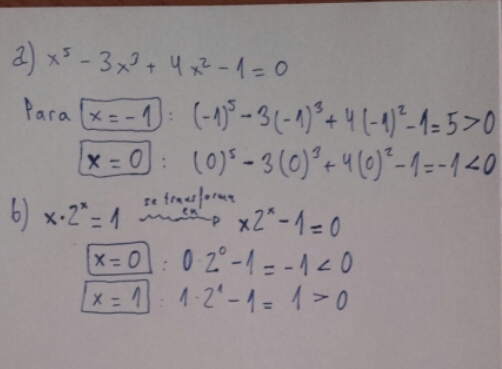 a) x⁵ - 3x³ + 4x² - 1 = 0
Para x = -1 : (-1)⁵ - 3(-1)³ + 4(-1)² - 1 = 5 > 0
x = 0 : (0)⁵ - 3(0)³ + 4(0)² - 1 = -1 < 0
b) x·2ˣ = 1 se transforma en x2ˣ - 1 = 0
x = 0 : 0·2⁰ - 1 = -1 < 0
x = 1 : 1·2¹ - 1 = 1 > 0